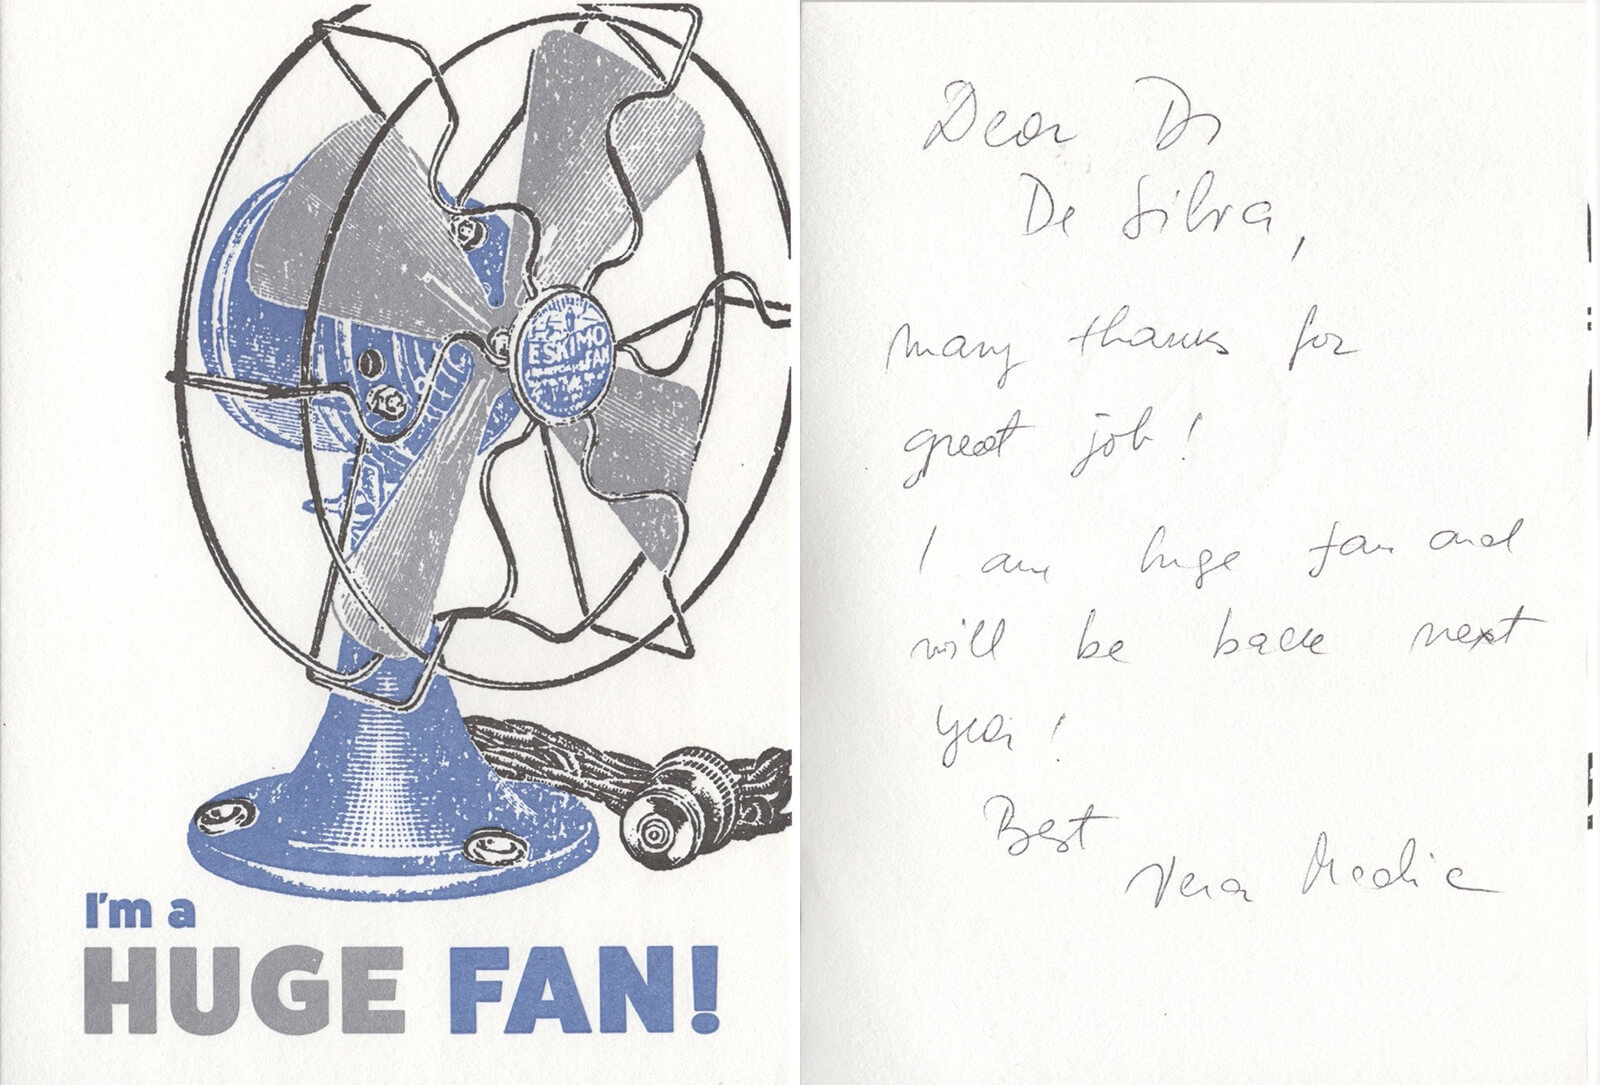 ESKIMO
FAN
I'm a
HUGE FAN!
Dear Dr
De Silva,
many thanks for
great job!
I am huge fan and
will be back next
year!
Best
Vera Medic